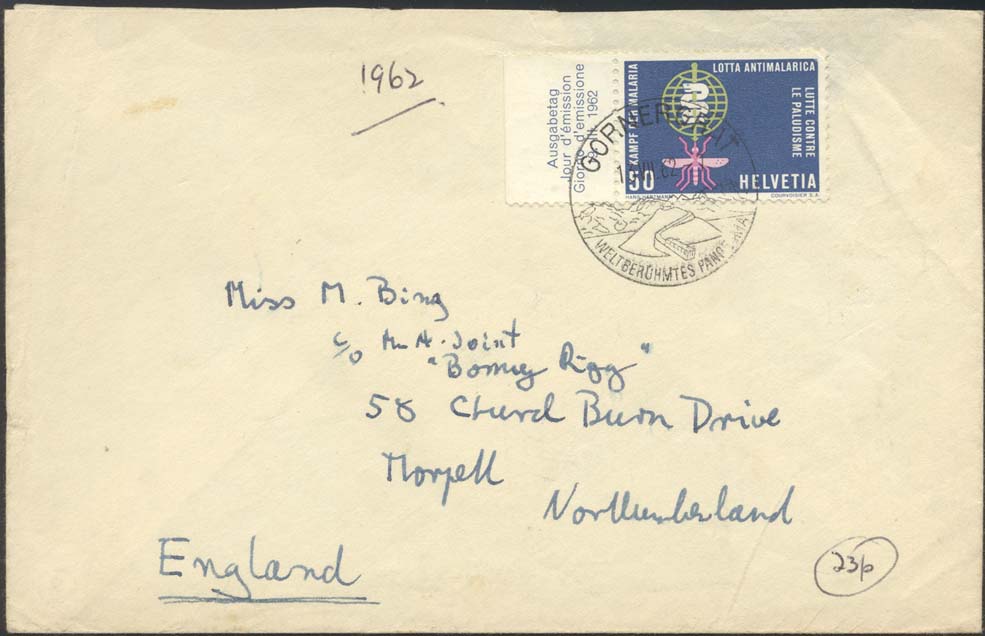 1962
Ausgabetag
Jour d'émission
Giorno d'emissione
19. III. 1962
KAMPF DER MALARIA
LOTTA ANTIMALARICA
LUTTE CONTRE
LE PALUDISME
50
HELVETIA
COURVOISIER S.A.
GORNERGRAT
62
WELTBERÜHMTES PANORAMA
Miss M. Bing
c/o A. Joint
"Bonny Rigg"
58 Church Burn Drive
Morpeth
Northumberland
England
23p